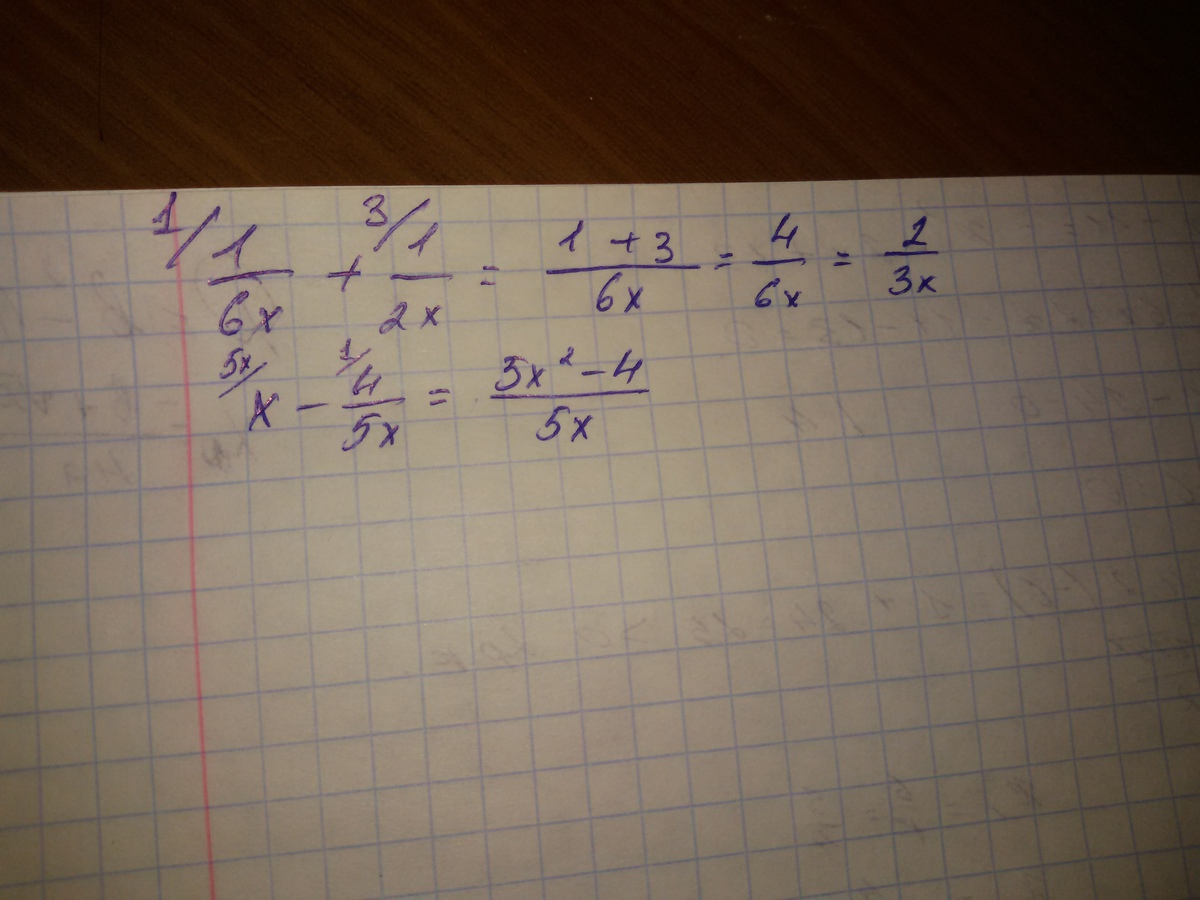 1/ 1/6x + 3/ 1/2x = 1+3/6x = 4/6x = 2/3x
5x/ x - 1/ 4/5x = 5x²-4/5x